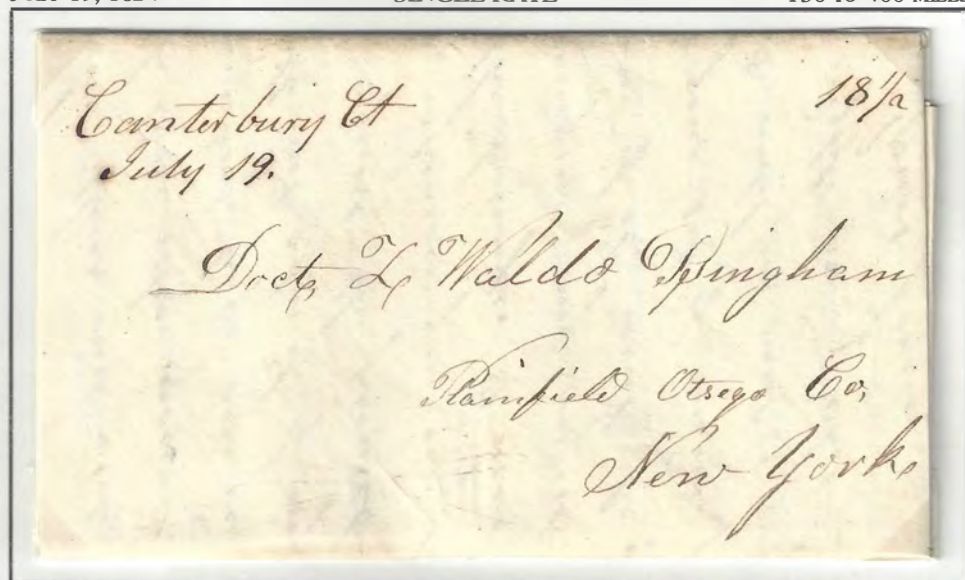 SINGLE RATE
Canterbury Ct
July 19.
18 1/2
Doct, L Waldo Bingham
Plainfield Otsego Co,
New York